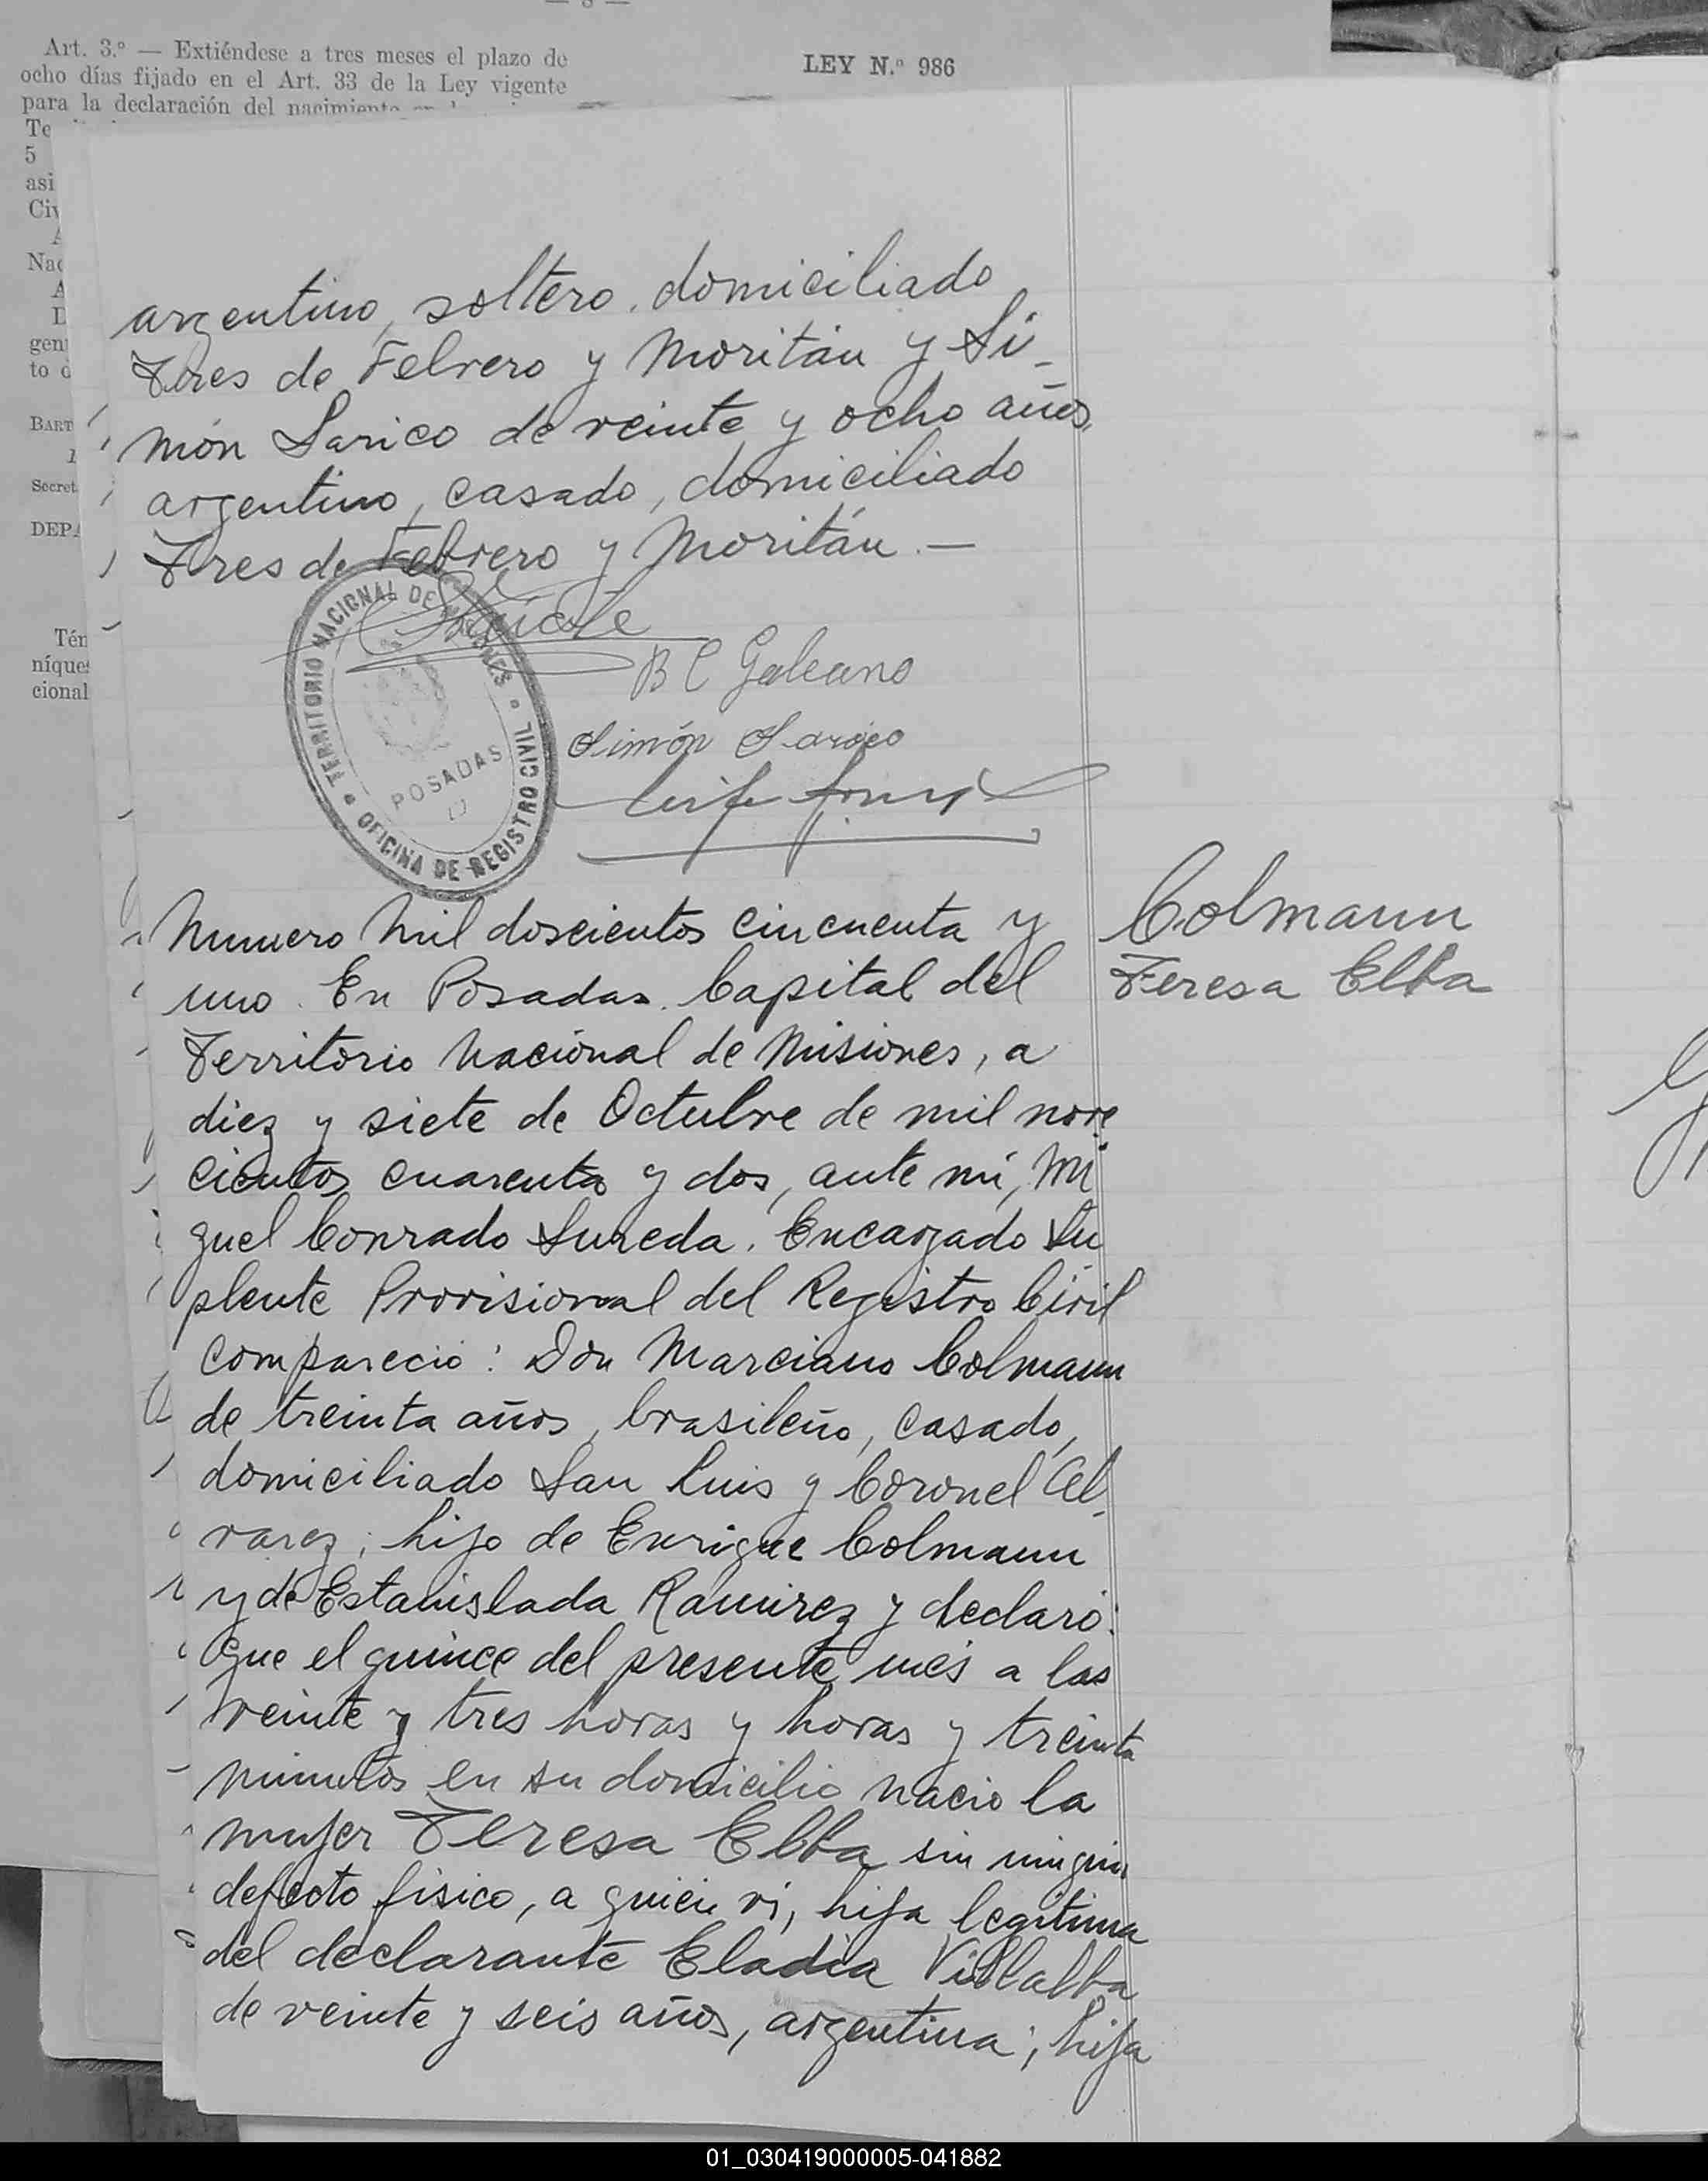 — 8 —
Art. 3.º — Extiéndese a tres meses el plazo de
ocho días fijado en el Art. 33 de la Ley vigente
para la declaración del nacimiento
LEY N.º 986
Te
5
asi
Civ
Nac
gen
to d
BART
1
Secret
DEPA
Tén
níques
cional
argentino, soltero, domiciliado
Tres de Febrero y Moritán y Si-
món Sarico de veinte y ocho años,
argentino, casado, domiciliado
Tres de Febrero y Moritán. —
TERRITORIO NACIONAL DE MISIONES
OFICINA DE REGISTRO CIVIL
POSADAS
B C Galeano
Simón Sarico
Numero mil doscientos cincuenta y
uno. En Posadas. Capital del
Territorio Nacional de Misiones, a
diez y siete de Octubre de mil nove
cientos cuarenta y dos, ante mí, Mi
guel Conrado Sureda. Encargado Su
plente Provisional del Registro Civil
compareció: Don Marciano Colmann
de treinta años, brasileño, casado,
domiciliado San Luis y Coronel Al-
varez; hijo de Enrique Colmann
y de Estanislada Ramirez y declaró:
Que el quince del presente més a las
veinte y tres horas y horas y treinta
minutos en su domicilio nacio la
mujer Teresa Elba sin ningún
defecto fisico, a quien vi, hija legitima
del declarante Eladia Villalba
de veinte y seis años, argentina; hija
Colmann
Teresa Elba
01_030419000005-041882